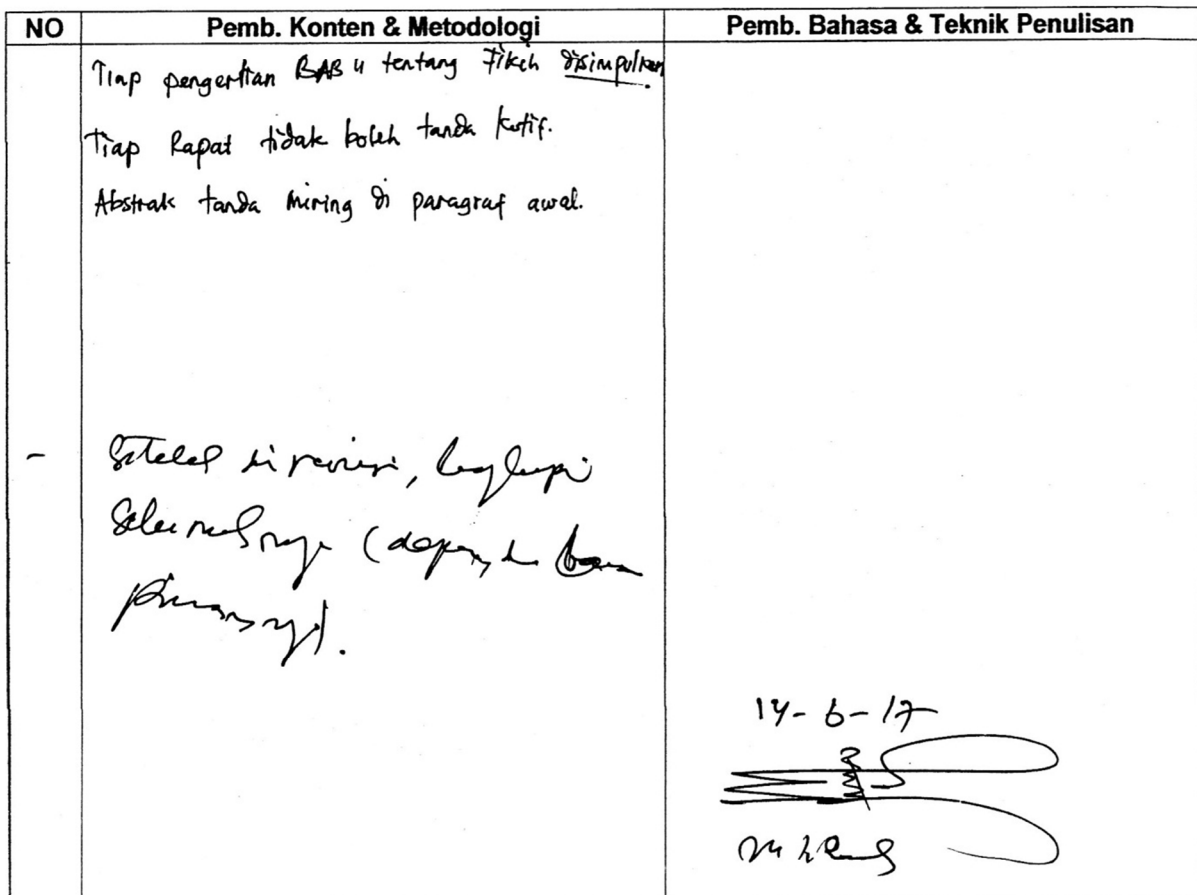 NO Pemb. Konten & Metodologi Pemb. Bahasa & Teknik Penulisan
Tiap pengertian BAB II tentang Fikih disimpulkan.
Tiap Rapat tidak boleh tanda kutif.
Abstrak tanda miring di paragraf awal.
- Setelah di revisi, lengkapi
Seluruhnya (depan,
14-6-17